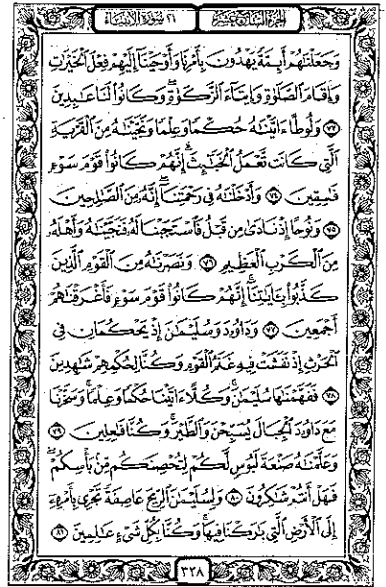 الجزء السابع عشر ٢١ سورة الأنبياء
وَجَعَلْنَٰهُمْ أَئِمَّةً يَهْدُونَ بِأَمْرِنَا وَأَوْحَيْنَآ إِلَيْهِمْ فِعْلَ ٱلْخَيْرَٰتِ
وَإِقَامَ ٱلصَّلَوٰةِ وَإِيتَآءَ ٱلزَّكَوٰةِ ۖ وَكَانُوا۟ لَنَا عَٰبِدِينَ
٧٣ وَلُوطًا ءَاتَيْنَٰهُ حُكْمًا وَعِلْمًا وَنَجَّيْنَٰهُ مِنَ ٱلْقَرْيَةِ
ٱلَّتِى كَانَت تَّعْمَلُ ٱلْخَبَٰٓئِثَ ۗ إِنَّهُمْ كَانُوا۟ قَوْمَ سَوْءٍ
فَٰسِقِينَ ٧٤ وَأَدْخَلْنَٰهُ فِى رَحْمَتِنَآ ۖ إِنَّهُۥ مِنَ ٱلصَّٰلِحِينَ
٧٥ وَنُوحًا إِذْ نَادَىٰ مِن قَبْلُ فَٱسْتَجَبْنَا لَهُۥ فَنَجَّيْنَٰهُ وَأَهْلَهُۥ
مِنَ ٱلْكَرْبِ ٱلْعَظِيمِ ٧٦ وَنَصَرْنَٰهُ مِنَ ٱلْقَوْمِ ٱلَّذِينَ
كَذَّبُوا۟ بِـَٔايَٰتِنَآ ۚ إِنَّهُمْ كَانُوا۟ قَوْمَ سَوْءٍ فَأَغْرَقْنَٰهُمْ
أَجْمَعِينَ ٧٧ وَدَاوُۥدَ وَسُلَيْمَٰنَ إِذْ يَحْكُمَانِ فِى
ٱلْحَرْثِ إِذْ نَفَشَتْ فِيهِ غَنَمُ ٱلْقَوْمِ وَكُنَّا لِحُكْمِهِمْ شَٰهِدِينَ
٧٨ فَفَهَّمْنَٰهَا سُلَيْمَٰنَ ۚ وَكُلًّا ءَاتَيْنَا حُكْمًا وَعِلْمًا ۚ وَسَخَّرْنَا
مَعَ دَاوُۥدَ ٱلْجِبَالَ يُسَبِّحْنَ وَٱلطَّيْرَ ۚ وَكُنَّا فَٰعِلِينَ ٧٩
وَعَلَّمْنَٰهُ صَنْعَةَ لَبُوسٍ لَّكُمْ لِتُحْصِنَكُم مِّنۢ بَأْسِكُمْ ۖ
فَهَلْ أَنتُمْ شَٰكِرُونَ ٨٠ وَلِسُلَيْمَٰنَ ٱلرِّيحَ عَاصِفَةً تَجْرِى بِأَمْرِهِۦٓ
إِلَى ٱلْأَرْضِ ٱلَّتِى بَٰرَكْنَا فِيهَا ۚ وَكُنَّا بِكُلِّ شَىْءٍ عَٰلِمِينَ ٨١
٣٢٨